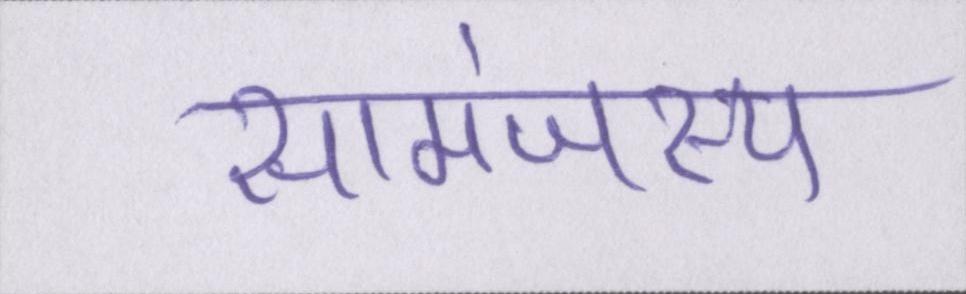 सामंजस्य